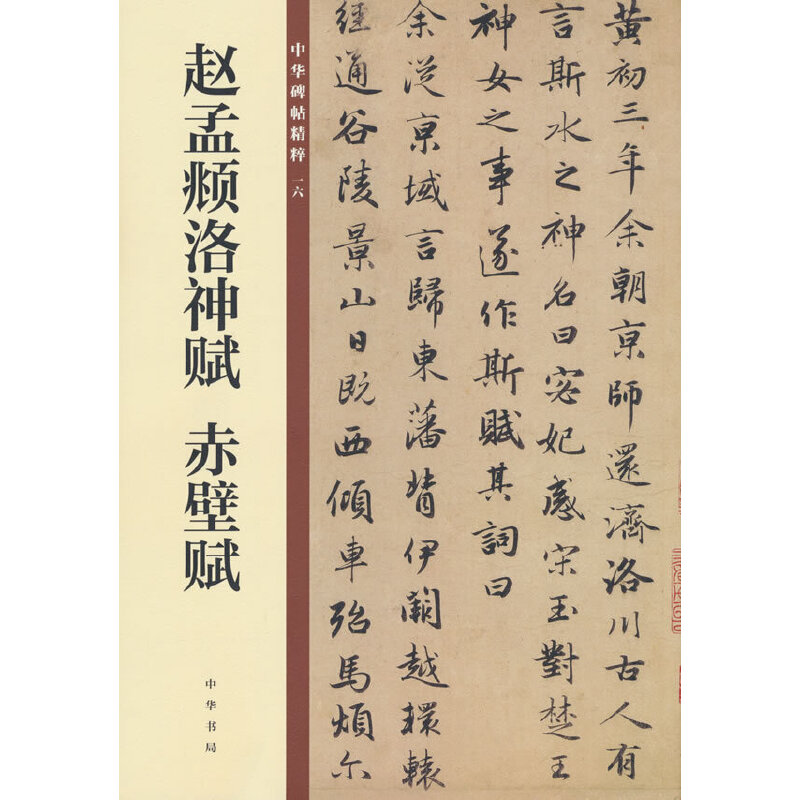 赵孟𫖯洛神赋 赤壁赋
中华书局
中华碑帖精粹 一六
黄初三年余朝亰師還濟洛川古人有
言斯水之神名曰宓妃感宋玉對楚王
神女之事遂作斯賦其詞曰
余從亰域言歸東藩背伊闕越轘轅
經通谷陵景山日既西傾車殆馬煩尔